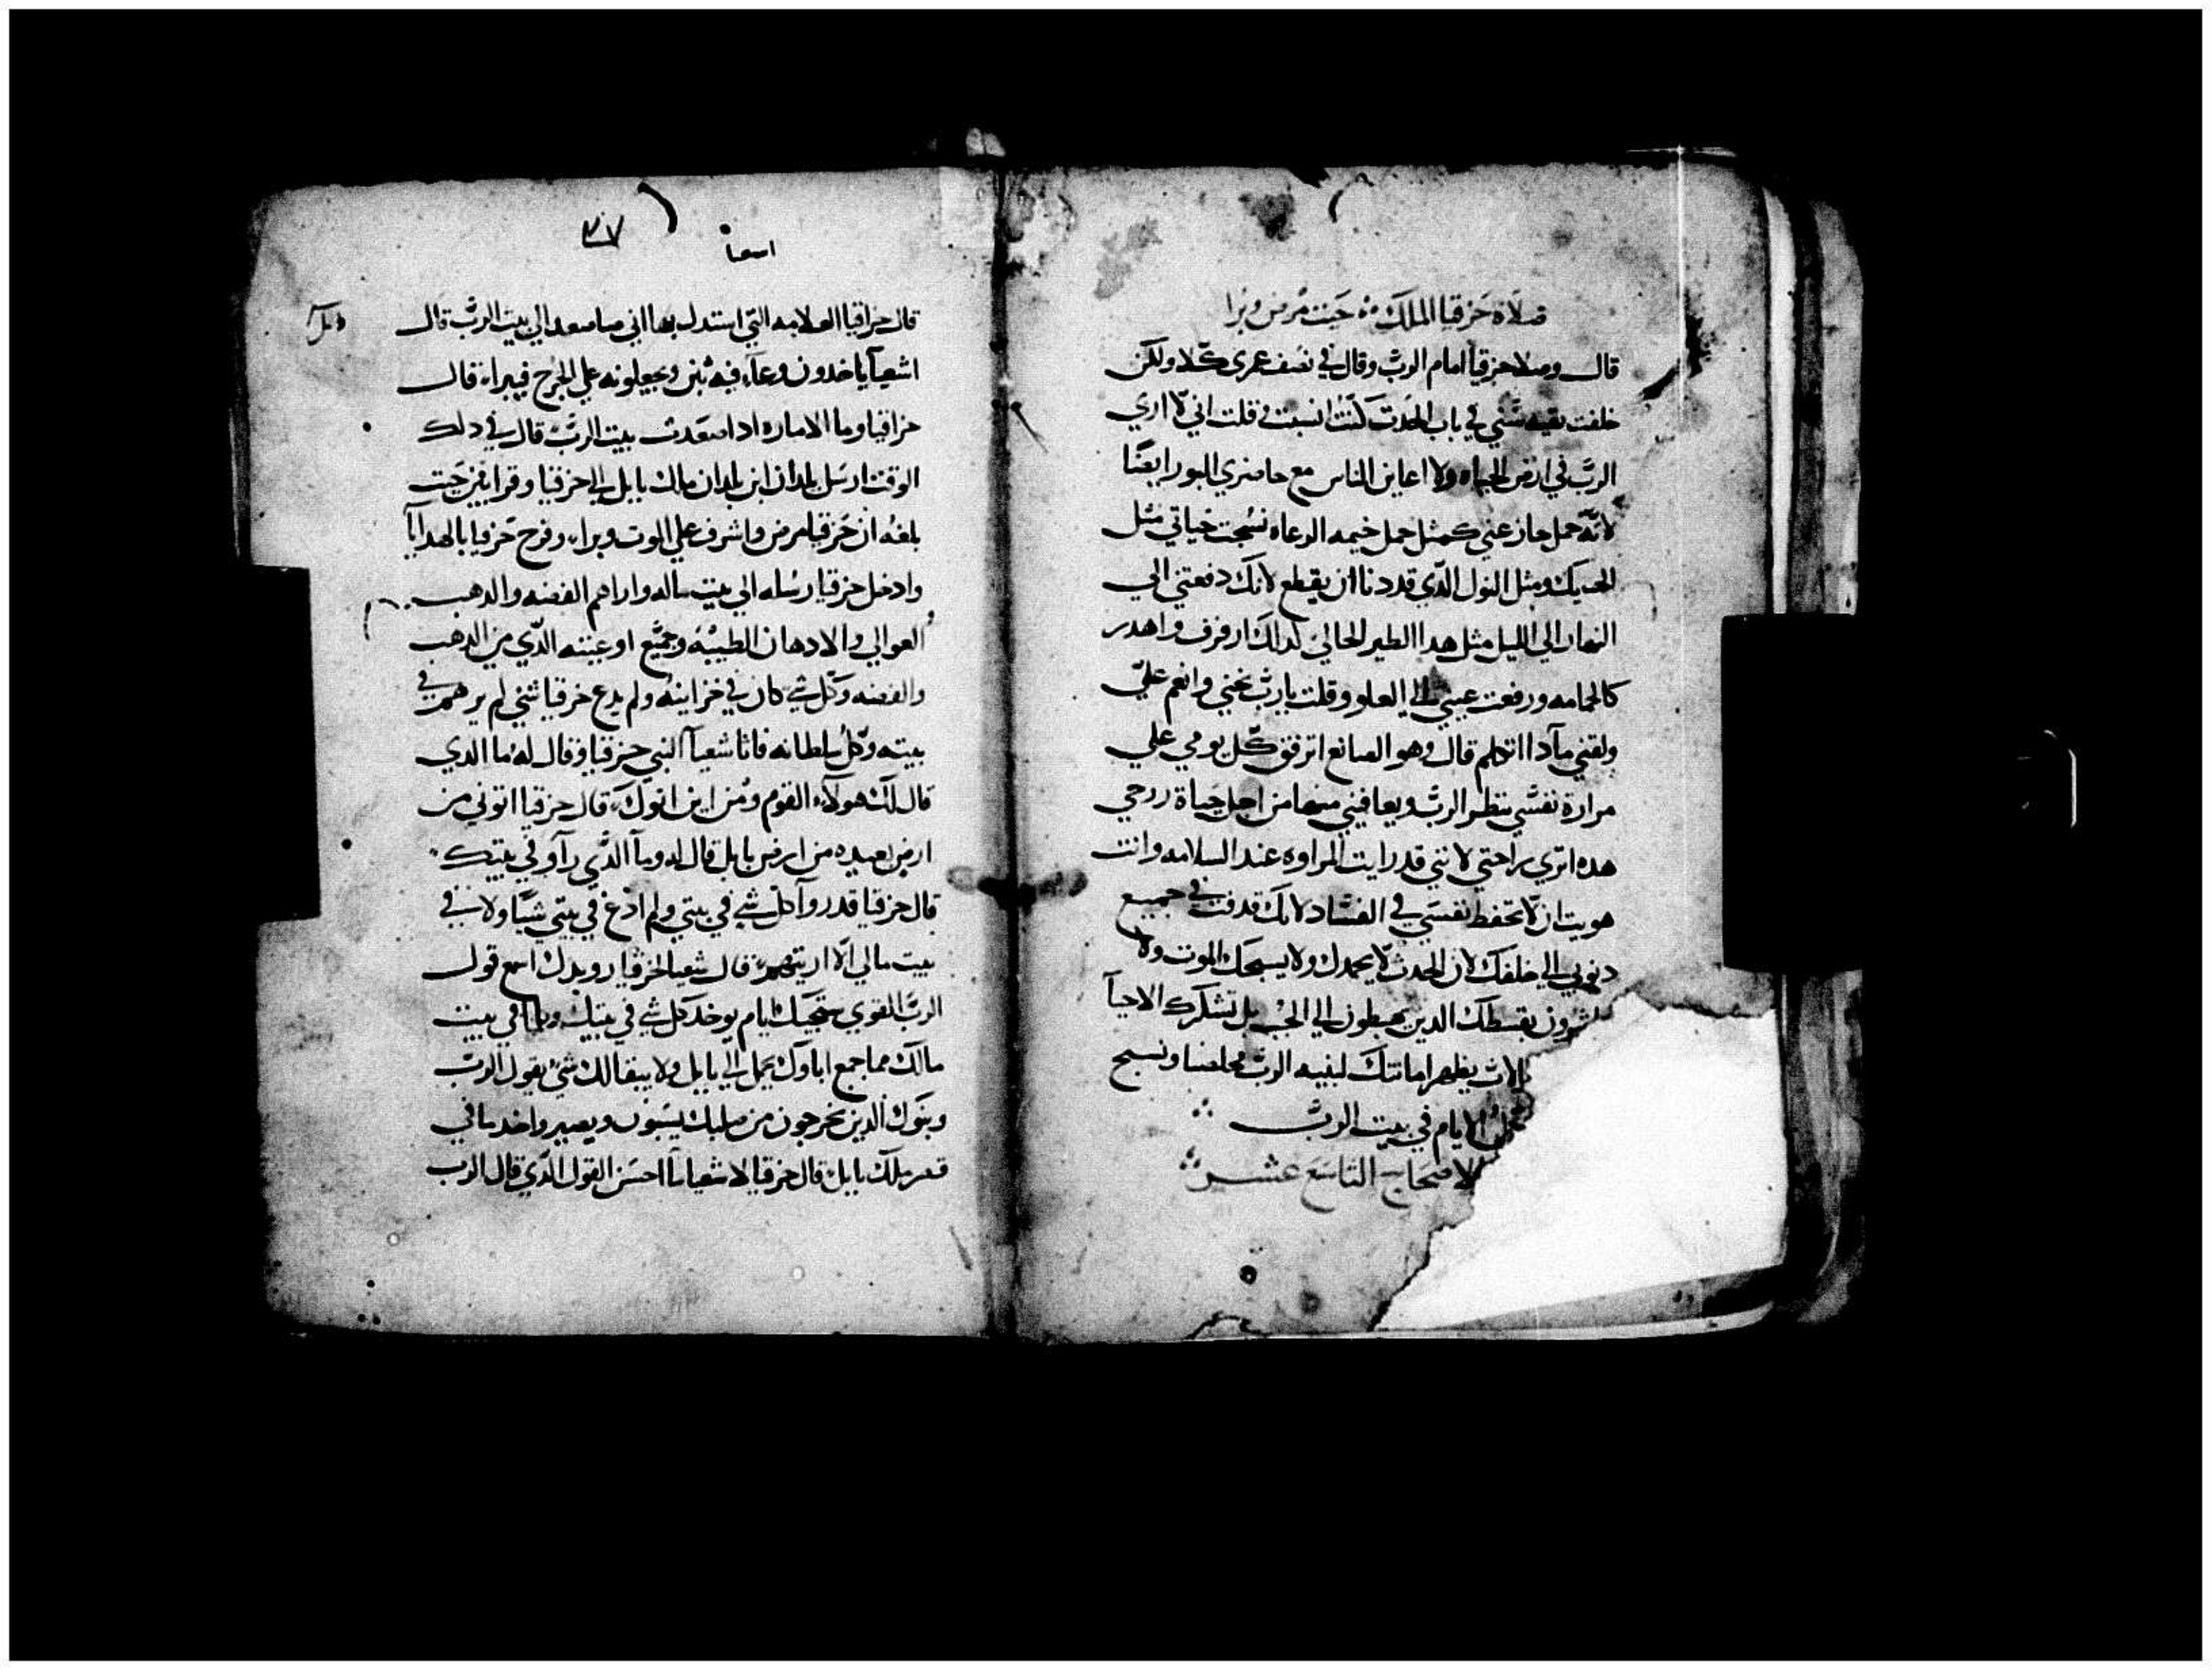 صلاة حزقيا الملك حيت مرض وبرا
قال وصلا حزقيا امام الرب وقال في نصف عمري كلا ولكن
خلفت بقيه سني في باب الحدت كنت انسبت قلت اني لا اري
الرب في ارض الحياه ولا اعاين الناس مع حاضري البور ايضا
لانه حمل جاز عني كمثل حمل خيمه الرعاه نسجت حياتي مثل
الحديك ومثل النول الدي قد دنا ان يقطع لانك دفعتني الي
النهار الي الليل مثل هدا الطير الحالي كدالك ارفرف واهدر
كالحمامه ورفعت عيني الي العلو وقلت يا رب نجني وانعم علي
ولقني مادا اتكلم قال وهو الصانع اترفق كل يومي علي
مرارة نفسي ينظر الرب ويعافيني منها من اجل حياة روحي
هده اتري براحتي لانني قد رايت المراوه عند السلامه وانت
هويت ان لا تحفظ نفسي في الفساد لانك قدفت في جميع
دنوبي الي خلفك لان الحدت لا يحمدك ولا يسبحك الموت ولا
يبشرون بقسطك الدين يهبطون الي الجب بل تشكرك الاحيا
الاب يظهر امانتك لبنيه الرب مخلصنا ونسبح
كل الايام في بيت الرب
الاصحاح التاسع عشر
٣٧
اسعيا
قال حزاقيا العلامه التي استدل بها اني صاصعد الي بيت الرب قال
اشعيا ياخدون وعاء فيه تين ويجعلونه علي الجرح فيبراء قال
حزاقيا وما الاماره ادا صعدت بيت الرب قال في دلك
الوقت ارسل بلدان ابن بلدان مالك بابل الي حزقيا وقرابين حيت
بلغه ان حزقيا مرض واشرف علي الموت وبراء وفرح حزقيا بالهدايا
وادخل حزقيا رسله الي بيت ماله واراهم الفضه والدهب
العوالي والادهان الطيبه وجميع اوعيته الدي من الدهب
والفضه وكل شي كان في خزاينه ولم يدع حزقيا شي لم يرهم في
بيته وكل سلطانه فاتا شعيا النبي حزقيا وقال له ما الدي
قال لك هولاء القوم ومن اين اتوك قال حزقيا اتوني من
ارض بعيده من ارض بابل قال له وما الدي راو في بيتك
قال حزقيا قد روا كل شي في بيتي ولم ادع في بيتي شيا ولا في
بيت مالي الا اريتهم قال شعيا لحزقيا رويدك اسمع قول
الرب القوي ستجيك ايام يوخد كل شي في بيتك وما في بيت
مالك مما جمع اباوك يحمل الي بابل ولا يبقا لك شي يقول الرب
وبنوك الدين يخرجون من صلبك يسبون ويصيروا خدما في
قصر ملك بابل قال حزقيا لاشعيا ما احسن القول الدي قال الرب